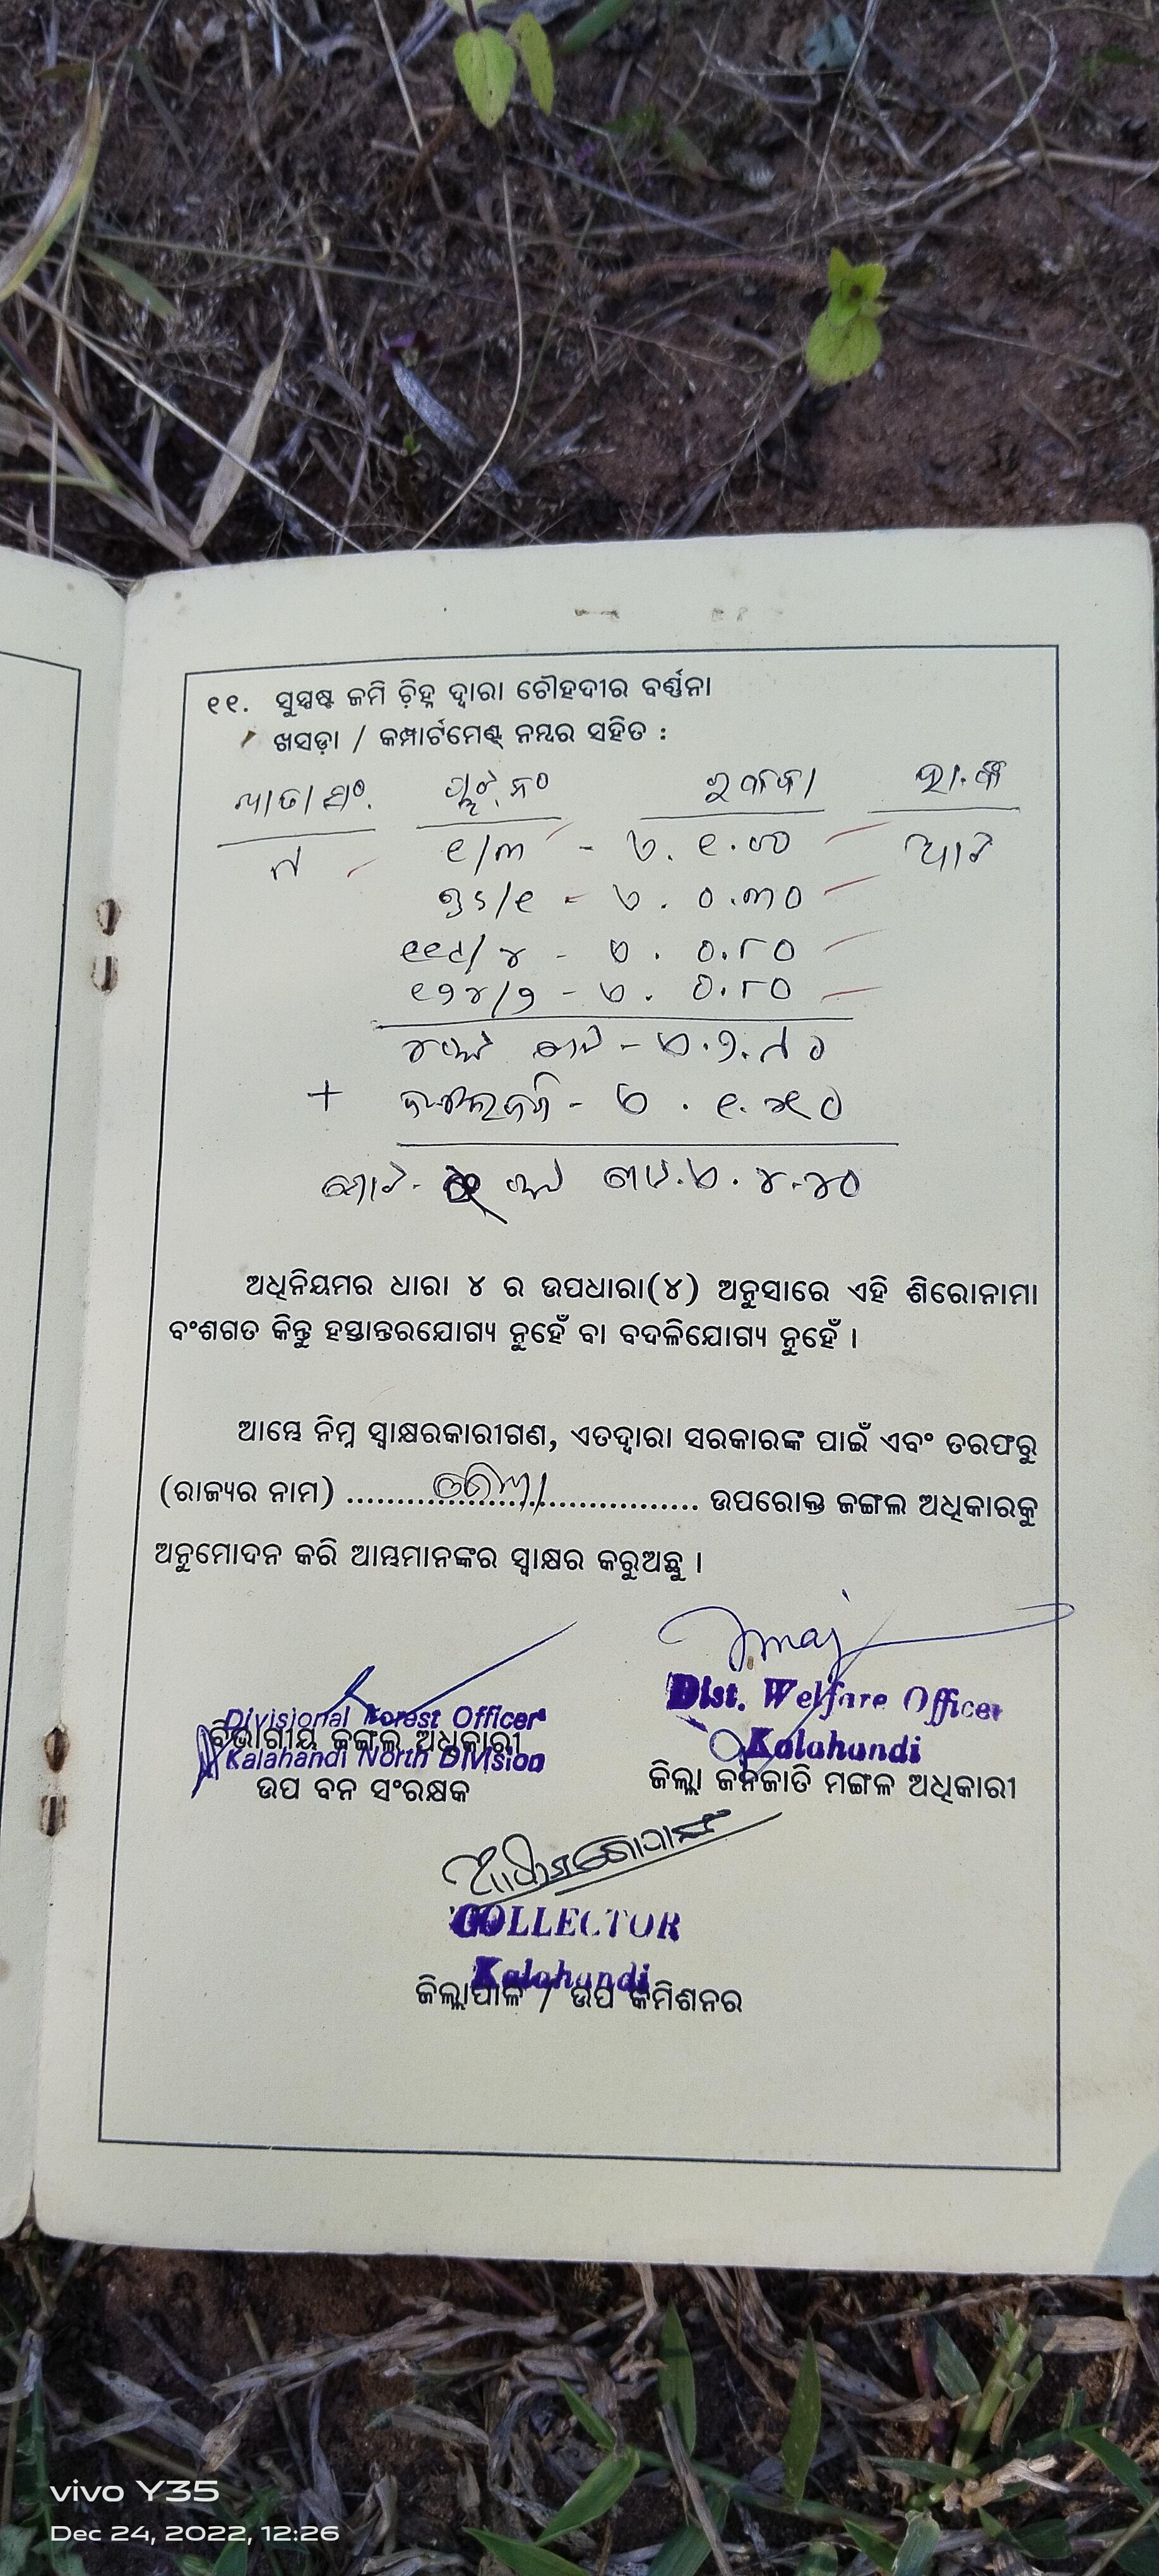 ୧୧. ସୁସ୍ପଷ୍ଟ ଜମି ଚ଼ିହ୍ନ ଦ୍ୱାରା ଚୌହଦୀର ବର୍ଣ୍ଣନା
ଖସଡ଼ା / କମ୍ପାର୍ଟମେଣ୍ଟ୍ ନମ୍ବର ସହିତ :
ପ୍ଲଟ୍ ନଂ ରକବା
୧/୩ - ୧.୦୦
୦.୩୦
୧୧୯/୪ - ୦.୮୦
୧୨୪/୨ - ୦.୮୦
+
୪.୪୦
ଅଧିନିୟମର ଧାରା ୪ ର ଉପଧାରା(୪) ଅନୁସାରେ ଏହି ଶିରୋନାମା
ବଂଶଗତ କିନ୍ତୁ ହସ୍ତାନ୍ତରଯୋଗ୍ୟ ନୁହେଁ ବା ବଦଳିଯୋଗ୍ୟ ନୁହେଁ ।
ଆମ୍ଭେ ନିମ୍ନ ସ୍ୱାକ୍ଷରକାରୀଗଣ, ଏତଦ୍ୱାରା ସରକାରଙ୍କ ପାଇଁ ଏବଂ ତରଫରୁ
(ରାଜ୍ୟର ନାମ) ........ଓଡିଶା........ ଉପରୋକ୍ତ ଜଙ୍ଗଲ ଅଧିକାରକୁ
ଅନୁମୋଦନ କରି ଆମ୍ଭମାନଙ୍କର ସ୍ୱାକ୍ଷର କରୁଅଛୁ ।
Divisional Forest Officer
ବିଭାଗୀୟ ଜଙ୍ଗଲ ଅଧିକାରୀ
Kalahandi North Division
ଉପ ବନ ସଂରକ୍ଷକ
Dist. Welfare Officer
Kalahandi
ଜିଲ୍ଲା ଜନଜାତି ମଙ୍ଗଳ ଅଧିକାରୀ
COLLECTOR
Kalahandi
ଜିଲ୍ଲାପାଳ / ଉପ କମିଶନର
vivo Y35
Dec 24, 2022, 12:26